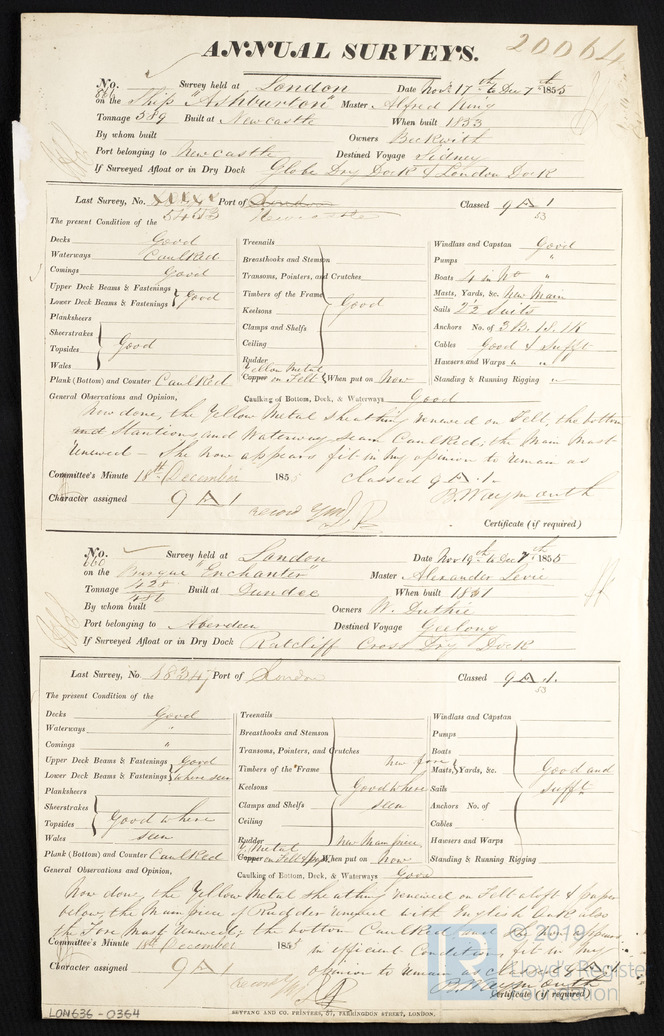 ANNUAL SURVEYS.
20064
No. 666 Survey held at London Date Novr 17th to Dec 7th 1855
on the Ship "Ashburton" Master Alfred King
Tonnage 589 Built at Newcastle When built 1853
By whom built Owners Beckwith
Port belonging to Newcastle Destined Voyage Sidney
If Surveyed Afloat or in Dry Dock Globe Dry Dock & London Dock
Last Survey, No. Port of London Classed 9 A 1
The present Condition of the Newcastle 53
Decks Good Treenails Windlass and Capstan Good
Waterways Caulked Breasthooks and Stemson Pumps "
Comings Good Transoms, Pointers, and Crutches Boats 4 in No "
Upper Deck Beams & Fastenings Timbers of the Frame Masts, Yards, &c. New Main
Lower Deck Beams & Fastenings Good Keelsons Good Sails 2½ Suits
Planksheers Clamps and Shelfs Anchors No. of 3B. 1S. 1K
Sheerstrakes Ceiling Cables Good & Sufft
Topsides Good Rudder Hawsers and Warps " "
Wales Yellow Metal
Plank (Bottom) and Counter Caulked Copper on Felt When put on Now Standing & Running Rigging "
General Observations and Opinion, Caulking of Bottom, Deck, & Waterways Good
Now done, the Yellow Metal sheathing renewed on Felt, the bottom
and Stantions and Waterway seam Caulked; the Main Mast
renewed – She now appears fit in my opinion to remain as
Committee's Minute 18th December 1855 classed 9 A .1.
Character assigned 9 A 1 record YM B. Waymouth
Certificate (if required)
No. 660 Survey held at London Date Nov 19th to Dec 7th 1855
on the Barque "Enchanter" Master Alexander Levie
Tonnage 428 Built at Dundee When built 1851
486
By whom built Owners W. Duthie
Port belonging to Aberdeen Destined Voyage Geelong
If Surveyed Afloat or in Dry Dock Ratcliff Cross Dry Dock
Last Survey, No 18347 Port of London Classed 9 A 1.
The present Condition of the 53
Decks Good Treenails Windlass and Capstan
Waterways " Breasthooks and Stemson Pumps
Comings " Transoms, Pointers, and Crutches Boats
Upper Deck Beams & Fastenings Good Timbers of the Frame New Fore Masts, Yards, &c. Good and
Lower Deck Beams & Fastenings where seen Keelsons Good where Sails sufft
Planksheers Clamps and Shelfs seen Anchors No. of
Sheerstrakes Ceiling Cables
Topsides Good where Rudder New Main piece Hawsers and Warps
Wales seen Y. Metal
Plank (Bottom) and Counter Caulked Copper on Felt & When put on now Standing & Running Rigging
General Observations and Opinion, Caulking of Bottom, Deck, & Waterways Good
Now done, the Yellow Metal sheathing renewed on Felt aloft & paper
below, the Main piece of Rudder renewed with English Oak also
the Fore Mast renewed; the bottom Caulked and She now appears
Committee's Minute 18th December 1855 in efficient Condition, fit in my
Character assigned 9 A 1 opinion to remain as classed 9 A 1
record YM B. Waymouth
Certificate (if required)
SEYFANG AND CO. PRINTERS, 57, FARRINGDON STREET, LONDON.
LON636-0364
© 2019
Lloyd's Register
Foundation